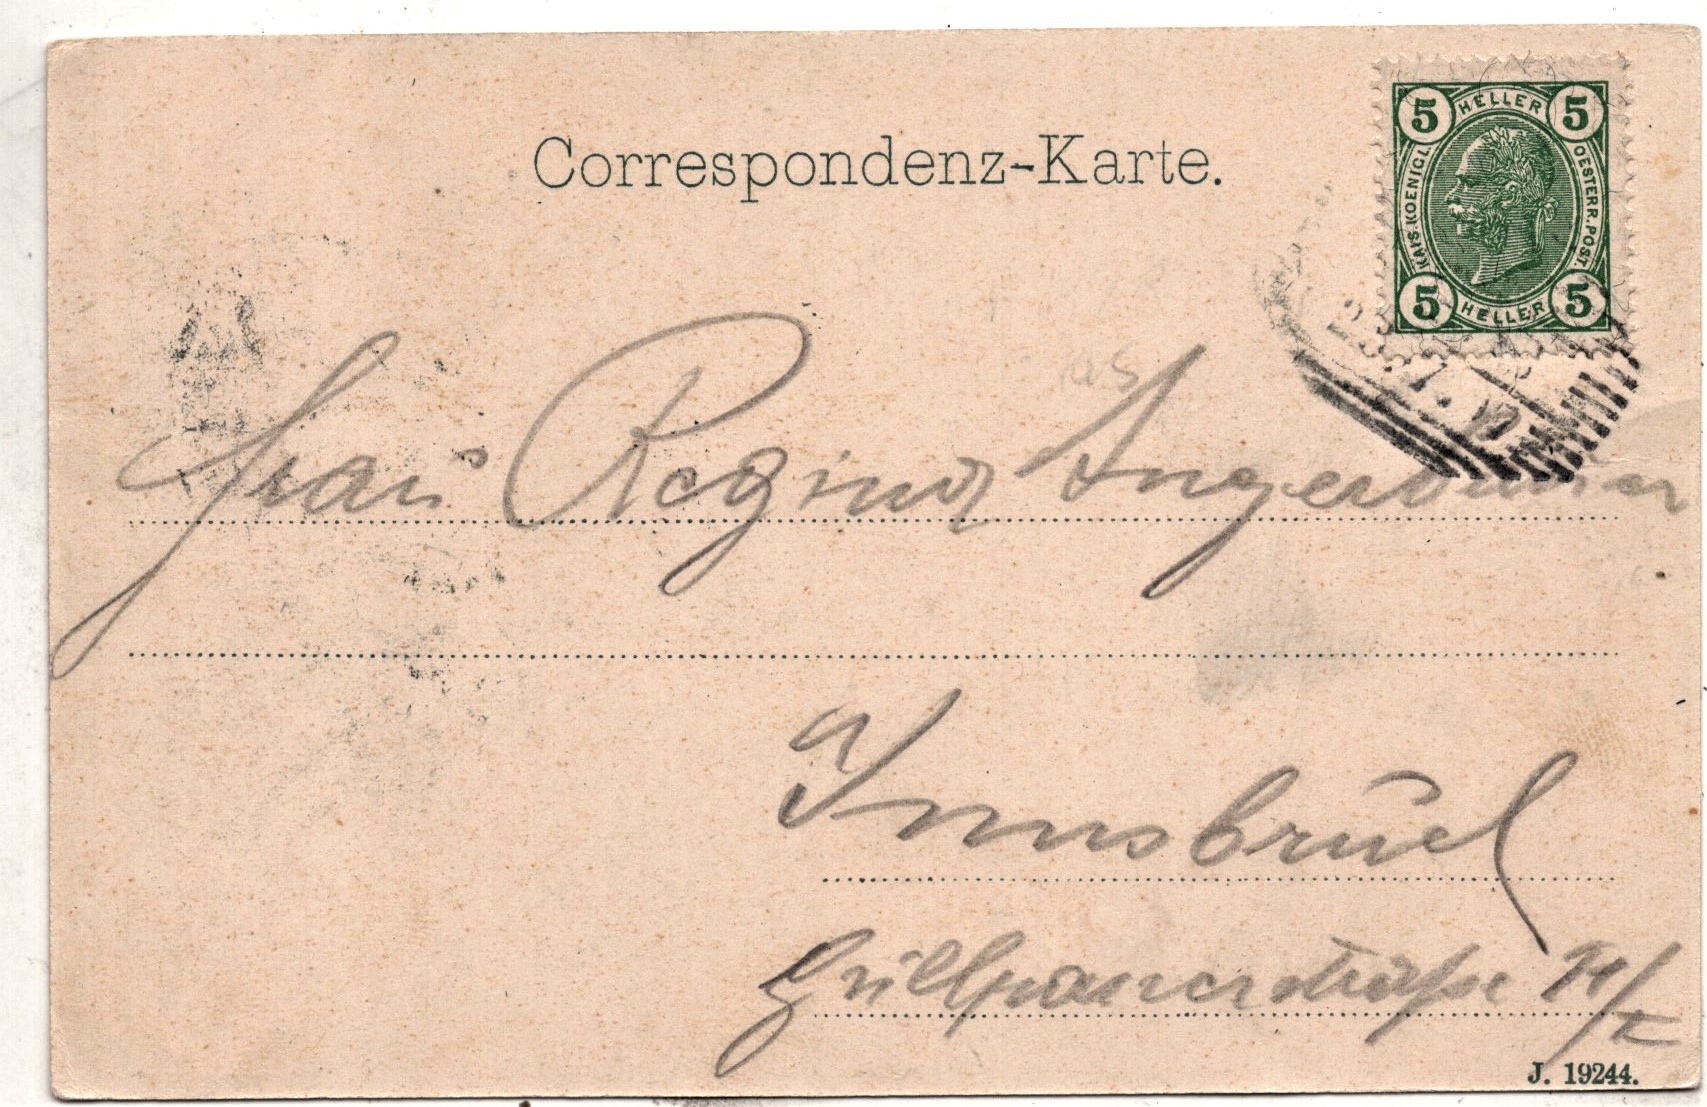 Correspondenz-Karte.
5 HELLER 5
KAIS. KOENIGL. OESTERR. POST.
5 HELLER 5
Frau Regina
Innsbruck
Grillparzerstraße
J. 19244.